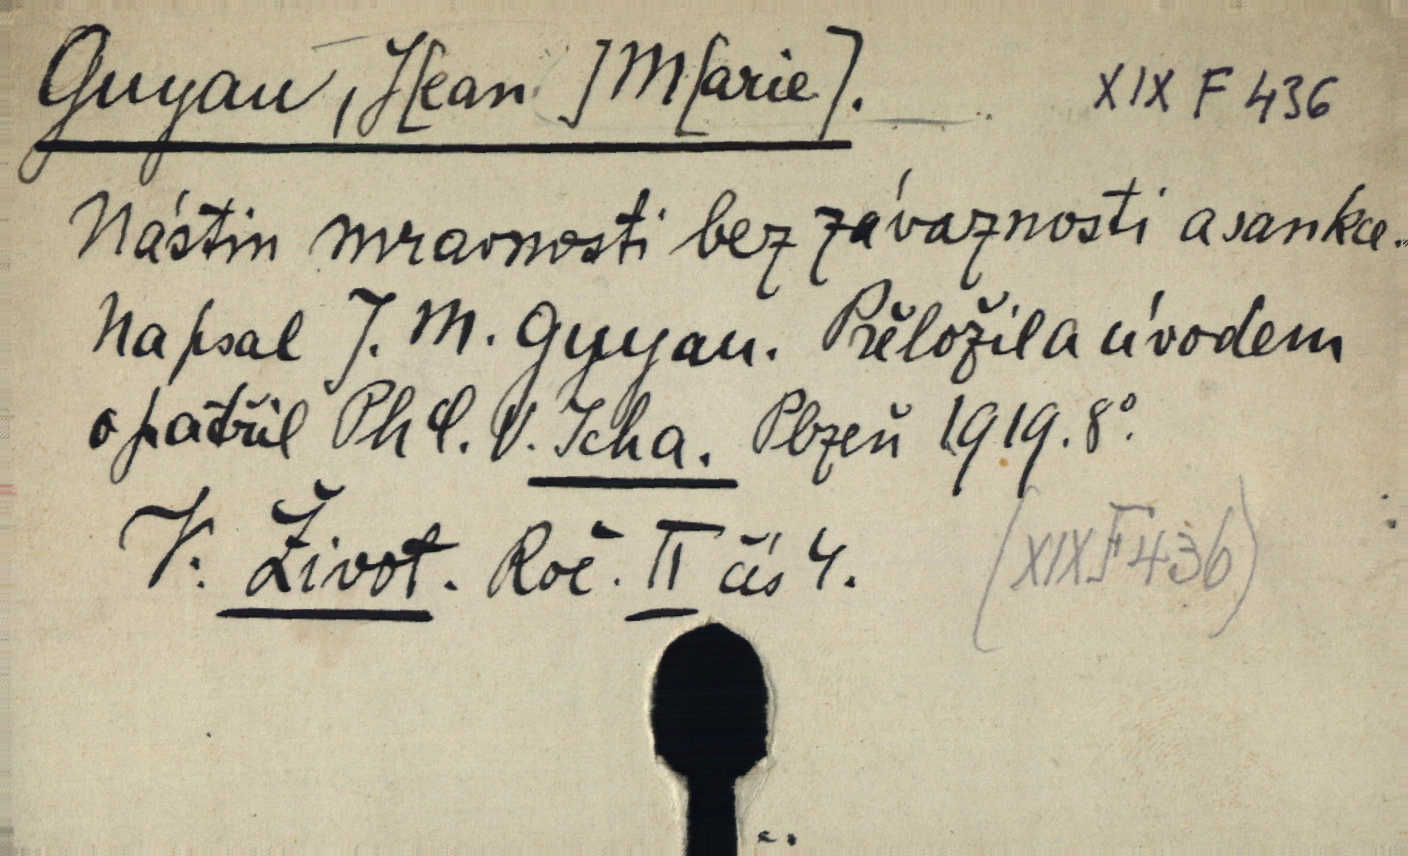 Guyau, J[ean] M[arie]. XIX F 436
Nástin mravnosti bez závaznosti a sankce.
Napsal J. M. Guyau. Přeložil a úvodem
opatřil PhC. V. Icha. Plzeň 1919. 8°.
V: Život. Roč. II čís 4. (XIX F 436)